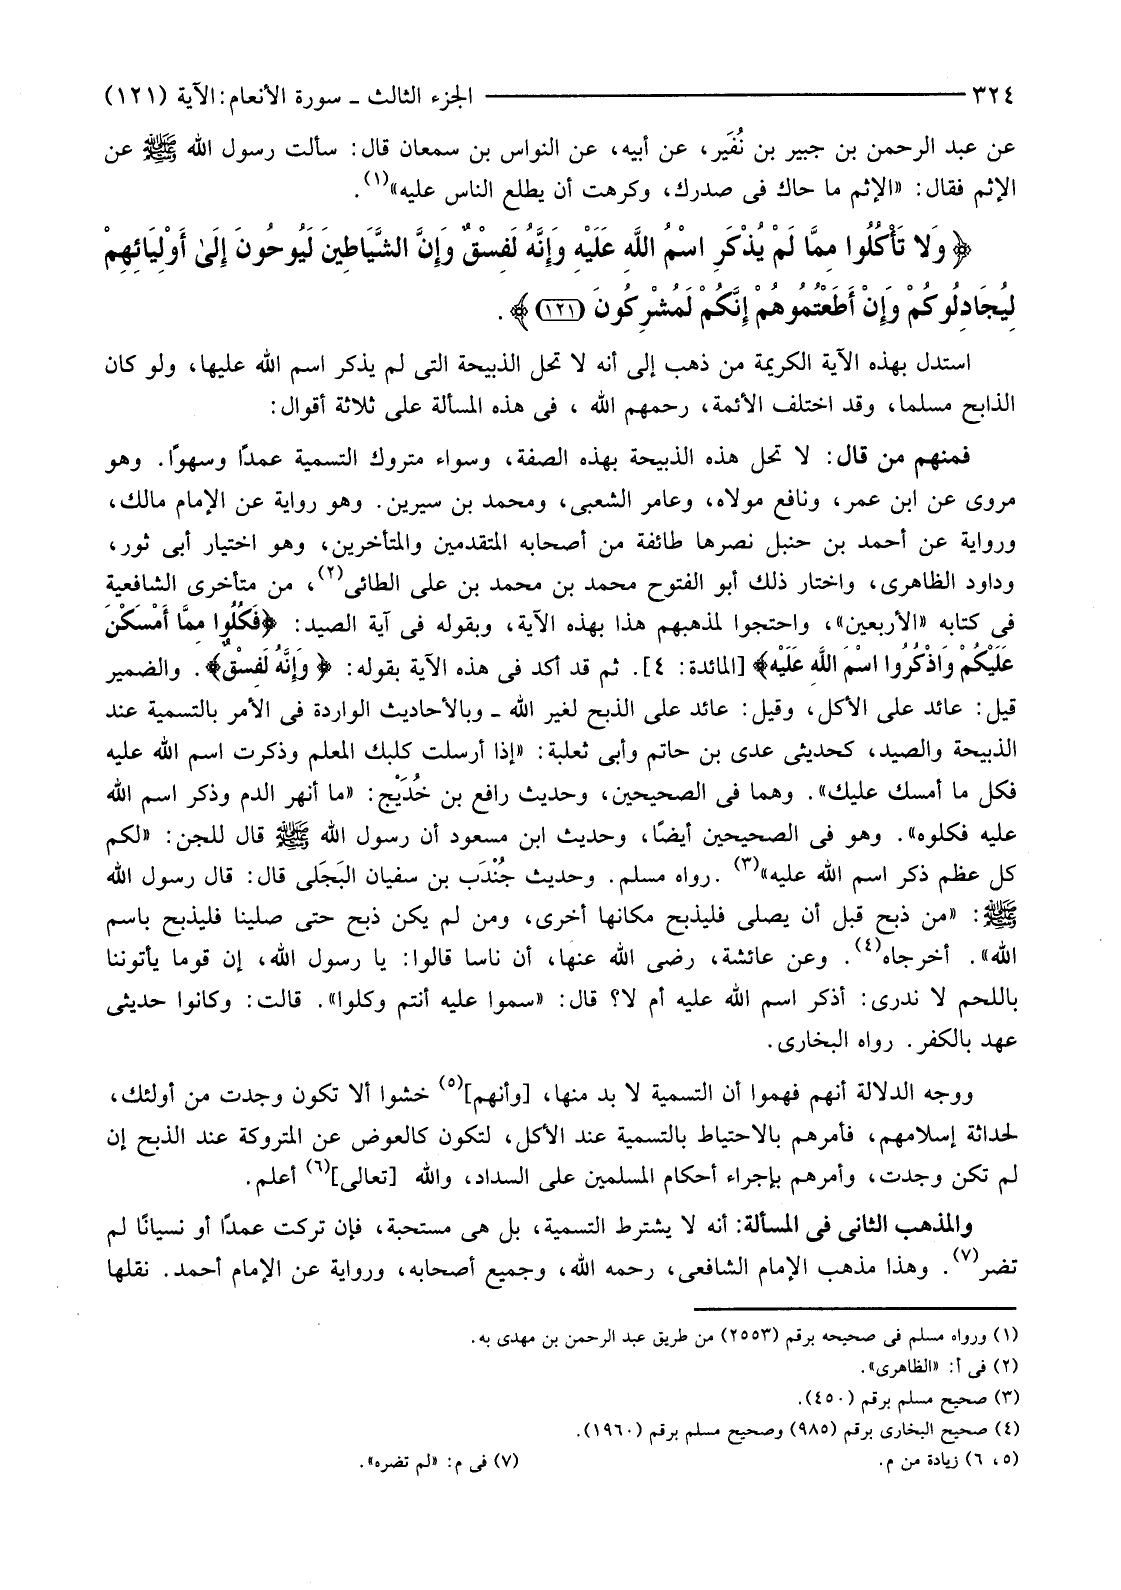 ٣٢٤ ــــــــــ الجزء الثالث ـ سورة الأنعام: الآية (١٢١)
عن عبد الرحمن بن جبير بن نُفَير، عن أبيه، عن النواس بن سمعان قال: سألت رسول الله ﷺ عن
الإثم فقال: «الإثم ما حاك فى صدرك، وكرهت أن يطلع الناس عليه»(١).
﴿ وَلا تَأْكُلُوا مِمَّا لَمْ يُذْكَرِ اسْمُ اللَّهِ عَلَيْهِ وَإِنَّهُ لَفِسْقٌ وَإِنَّ الشَّيَاطِينَ لَيُوحُونَ إِلَىٰ أَوْلِيَائِهِمْ
لِيُجَادِلُوكُمْ وَإِنْ أَطَعْتُمُوهُمْ إِنَّكُمْ لَمُشْرِكُونَ (١٢١) ﴾ .
استدل بهذه الآية الكريمة من ذهب إلى أنه لا تحل الذبيحة التى لم يذكر اسم الله عليها، ولو كان
الذابح مسلما، وقد اختلف الأئمة، رحمهم الله ، فى هذه المسألة على ثلاثة أقوال:
فمنهم من قال: لا تحل هذه الذبيحة بهذه الصفة، وسواء متروك التسمية عمدًا وسهوًا. وهو
مروى عن ابن عمر، ونافع مولاه، وعامر الشعبى، ومحمد بن سيرين. وهو رواية عن الإمام مالك،
ورواية عن أحمد بن حنبل نصرها طائفة من أصحابه المتقدمين والمتأخرين، وهو اختيار أبى ثور،
وداود الظاهرى، واختار ذلك أبو الفتوح محمد بن محمد بن على الطائى(٢)، من متأخرى الشافعية
فى كتابه «الأربعين»، واحتجوا لمذهبهم هذا بهذه الآية، وبقوله فى آية الصيد: ﴿فَكُلُوا مِمَّا أَمْسَكْنَ
عَلَيْكُمْ وَاذْكُرُوا اسْمَ اللَّهِ عَلَيْهِ﴾ [المائدة: ٤]. ثم قد أكد فى هذه الآية بقوله: ﴿ وَإِنَّهُ لَفِسْقٌ﴾. والضمير
قيل: عائد على الأكل، وقيل: عائد على الذبح لغير الله ـ وبالأحاديث الواردة فى الأمر بالتسمية عند
الذبيحة والصيد، كحديثى عدى بن حاتم وأبى ثعلبة: «إذا أرسلت كلبك المعلم وذكرت اسم الله عليه
فكل ما أمسك عليك». وهما فى الصحيحين، وحديث رافع بن خُدَيْج: «ما أنهر الدم وذكر اسم الله
عليه فكلوه». وهو فى الصحيحين أيضًا، وحديث ابن مسعود أن رسول الله ﷺ قال للجن: «لكم
كل عظم ذكر اسم الله عليه»(٣) .رواه مسلم. وحديث جُنْدَب بن سفيان البَجَلى قال: قال رسول الله
ﷺ: «من ذبح قبل أن يصلى فليذبح مكانها أخرى، ومن لم يكن ذبح حتى صلينا فليذبح باسم
الله». أخرجاه(٤). وعن عائشة، رضى الله عنها، أن ناسا قالوا: يا رسول الله، إن قوما يأتوننا
باللحم لا ندرى: أذكر اسم الله عليه أم لا؟ قال: «سموا عليه أنتم وكلوا». قالت: وكانوا حديثى
عهد بالكفر. رواه البخارى.
ووجه الدلالة أنهم فهموا أن التسمية لا بد منها، [وأنهم](٥) خشوا ألا تكون وجدت من أولئك،
لحداثة إسلامهم، فأمرهم بالاحتياط بالتسمية عند الأكل، لتكون كالعوض عن المتروكة عند الذبح إن
لم تكن وجدت، وأمرهم بإجراء أحكام المسلمين على السداد، والله [تعالى](٦) أعلم.
والمذهب الثانى فى المسألة: أنه لا يشترط التسمية، بل هى مستحبة، فإن تركت عمدًا أو نسيانًا لم
تضر(٧). وهذا مذهب الإمام الشافعى، رحمه الله، وجميع أصحابه، ورواية عن الإمام أحمد. نقلها
(١) ورواه مسلم فى صحيحه برقم (٢٥٥٣) من طريق عبد الرحمن بن مهدى به.
(٢) فى أ: «الظاهرى».
(٣) صحيح مسلم برقم (٤٥٠).
(٤) صحيح البخارى برقم (٩٨٥) وصحيح مسلم برقم (١٩٦٠).
(٥، ٦) زيادة من م. (٧) فى م: «لم تضره».